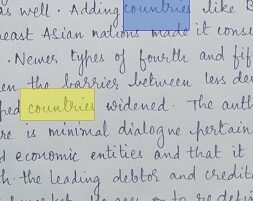 as well. Adding countries like B
east Asian nations made it cons
. Newer types of fourth and fif
en the barrier between less de
ped countries widened. The auth
re is minimal dialogue pertain
d economic entities and that it
th. the leading debtor and credit